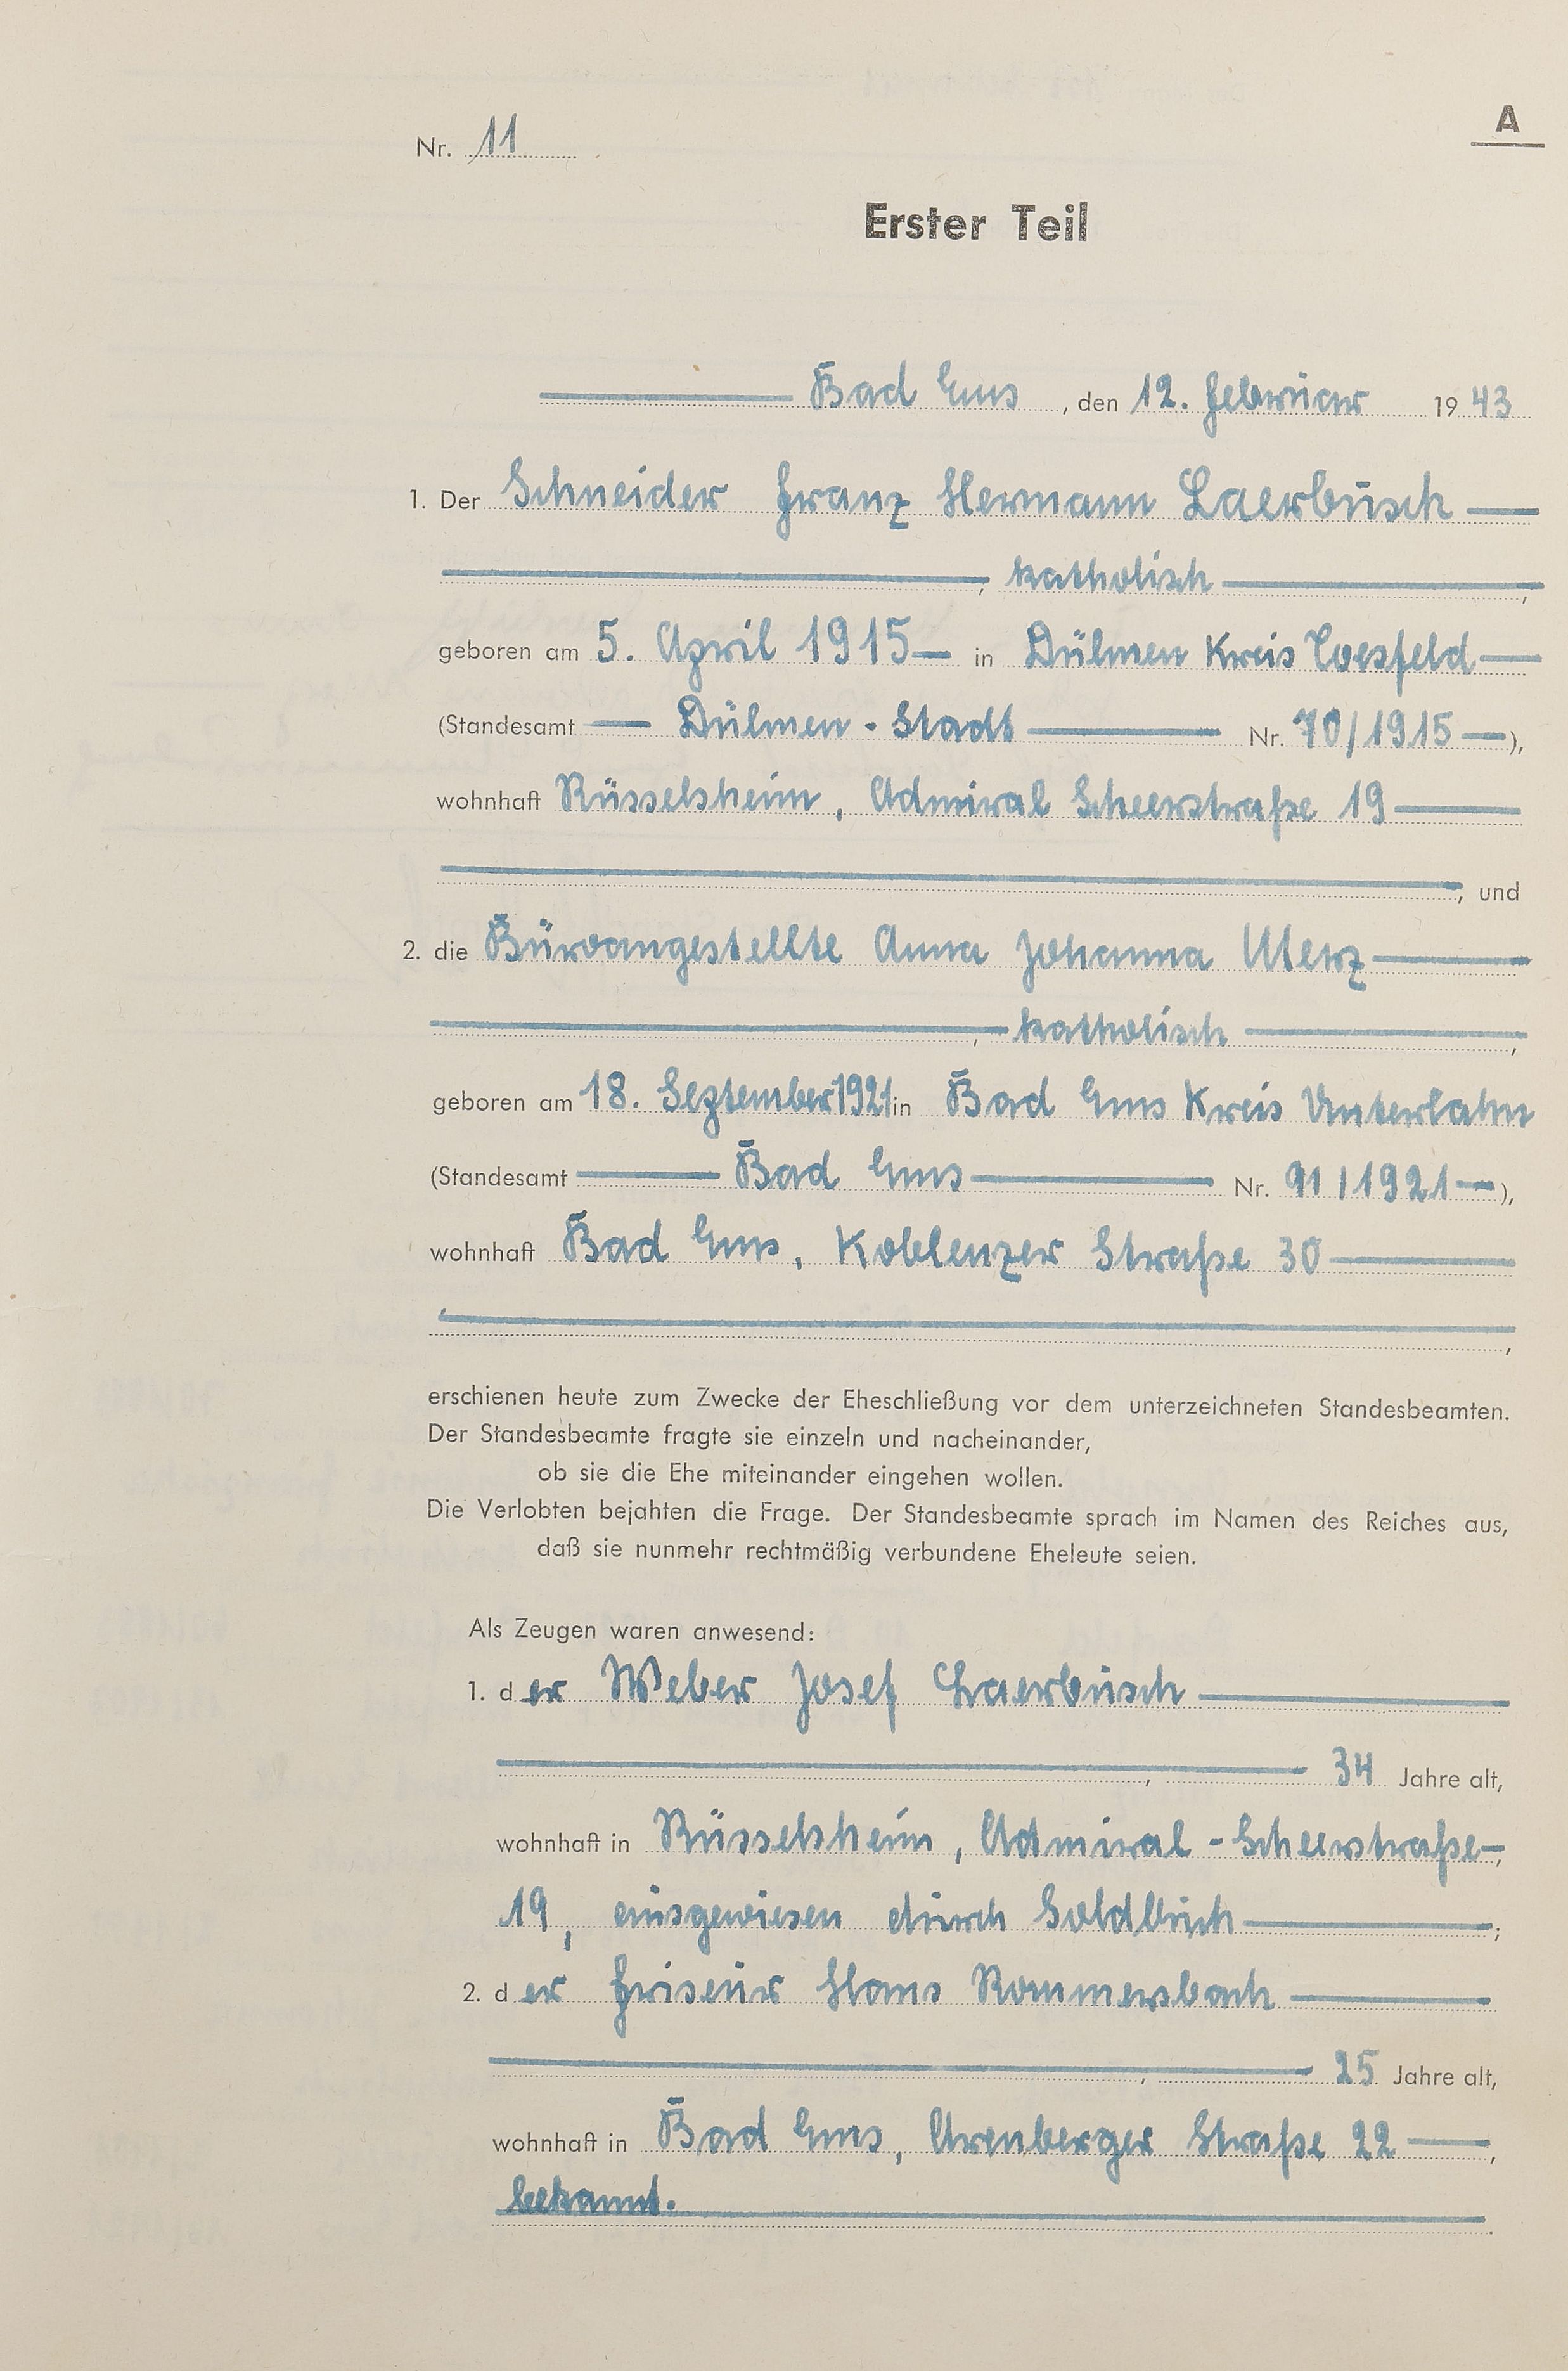 A
Nr. 11
Erster Teil
Bad Ems, den 12. Februar 1943
1. Der Schneider Franz Hermann Laerbusch
, katholisch,
geboren am 5. April 1915 in Dülmen Kreis Coesfeld
(Standesamt Dülmen - Stadt Nr. 70/1915),
wohnhaft Rüsselsheim, Admiral Scheerstraße 19
, und
2. die Büroangestellte Anna Johanna Uterz
, katholisch,
geboren am 18. September 1921 in Bad Ems Kreis Unterlahn
(Standesamt Bad Ems Nr. 91/1921),
wohnhaft Bad Ems, Koblenzer Straße 30
,
erschienen heute zum Zwecke der Eheschließung vor dem unterzeichneten Standesbeamten.
Der Standesbeamte fragte sie einzeln und nacheinander,
ob sie die Ehe miteinander eingehen wollen.
Die Verlobten bejahten die Frage. Der Standesbeamte sprach im Namen des Reiches aus,
daß sie nunmehr rechtmäßig verbundene Eheleute seien.
Als Zeugen waren anwesend:
1. der Weber Josef Laerbusch
, 34 Jahre alt,
wohnhaft in Rüsselsheim, Admiral - Scheerstraße,
19, ausgewiesen durch Soldbuch;
2. der Friseur Hans Rommersbach
, 25 Jahre alt,
wohnhaft in Bad Ems, Arenberger Straße 22,
bekannt.